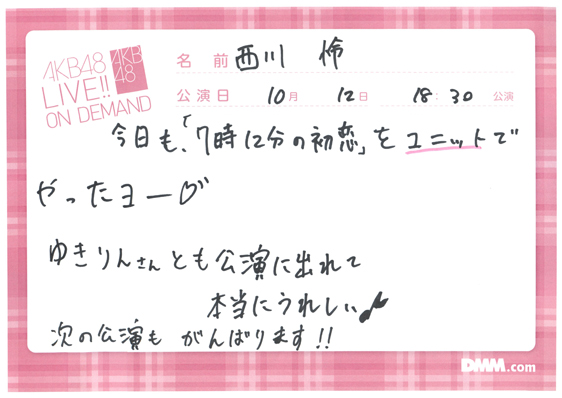 AKB48
LIVE!!
ON DEMAND
AKB
48
名前 西川 怜
公演日 10月 12日 18:30 公演
今日も、「7時12分の初恋」をユニットで
やったヨー♡
ゆきりんさんとも公演に出れて
本当にうれしい♪
次の公演も がんばります!!
DMM.com